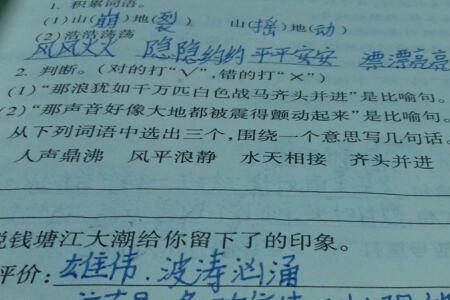 1. 积累词语。
(1)山(崩)地(裂) 山(摇)地(动)
(2)浩浩荡荡
风风火火 隐隐约约 平平安安 漂漂亮亮
2. 判断。(对的打“√”,错的打“×”)
(1)“那浪犹如千万匹白色战马齐头并进”是比喻句。
(2)“那声音好像大地都被震得颤动起来”是比喻句。
从下列词语中选出三个,围绕一个意思写几句话。
人声鼎沸 风平浪静 水天相接 齐头并进
说钱塘江大潮给你留下了的印象。
评价:雄伟、波涛汹涌